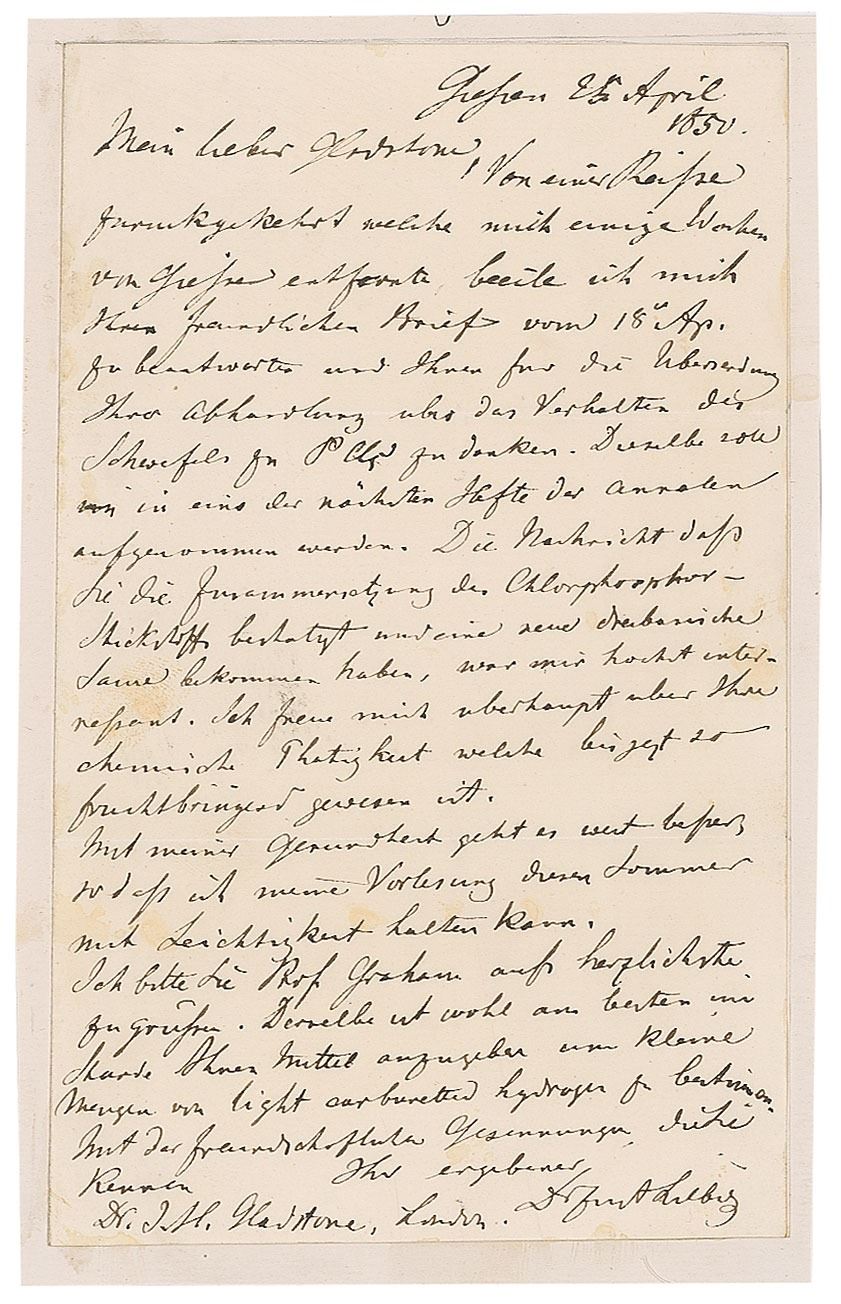 Giessen April
1850.
Mein lieber Gladstone,
Von einer Reisse
zuruckgekehrt welche mich einige Wochen
von Giessen entfernte, beeile ich mich
Ihren freundlichen Brief vom 18n Ap.
zu beantworten und Ihnen fur die Ubersendung
Ihrer Abhandlung uber das Verhalten des
Schwefels zu P Cl5 zu danken. Dieselbe soll
in eins der nächsten Hefte der Annalen
aufgenommen werden. Die Nachricht daß
Sie die Zusammensetzung des Chlorphosphor-
Stickstoffs bestatigt und eine neue dreibasische
Saure bekommen haben, war mir hochst inter-
ressant. Ich freue mich uberhaupt uber Ihre
chemische Thatigkeit welche bis jezt so
fruchtbringend gewesen ist.
Mit meiner Gesundheit geht es weit besser,
so daß ich meine Vorlesung diesen Sommer
mit Leichtigkeit halten kann.
Ich bitte Sie Prof. Graham aufs herzlichste
zu grüssen. Derselbe ist wohl am besten im
Stande Ihnen Mittel anzugeben um kleine
Mengen von light carburetted hydrogen zu bestimmen.
Mit der freundschaftlichen Gesinnungen, die Sie
kennen Ihr ergebener
Dr. J. H. Gladstone, London. Dr Just Liebig